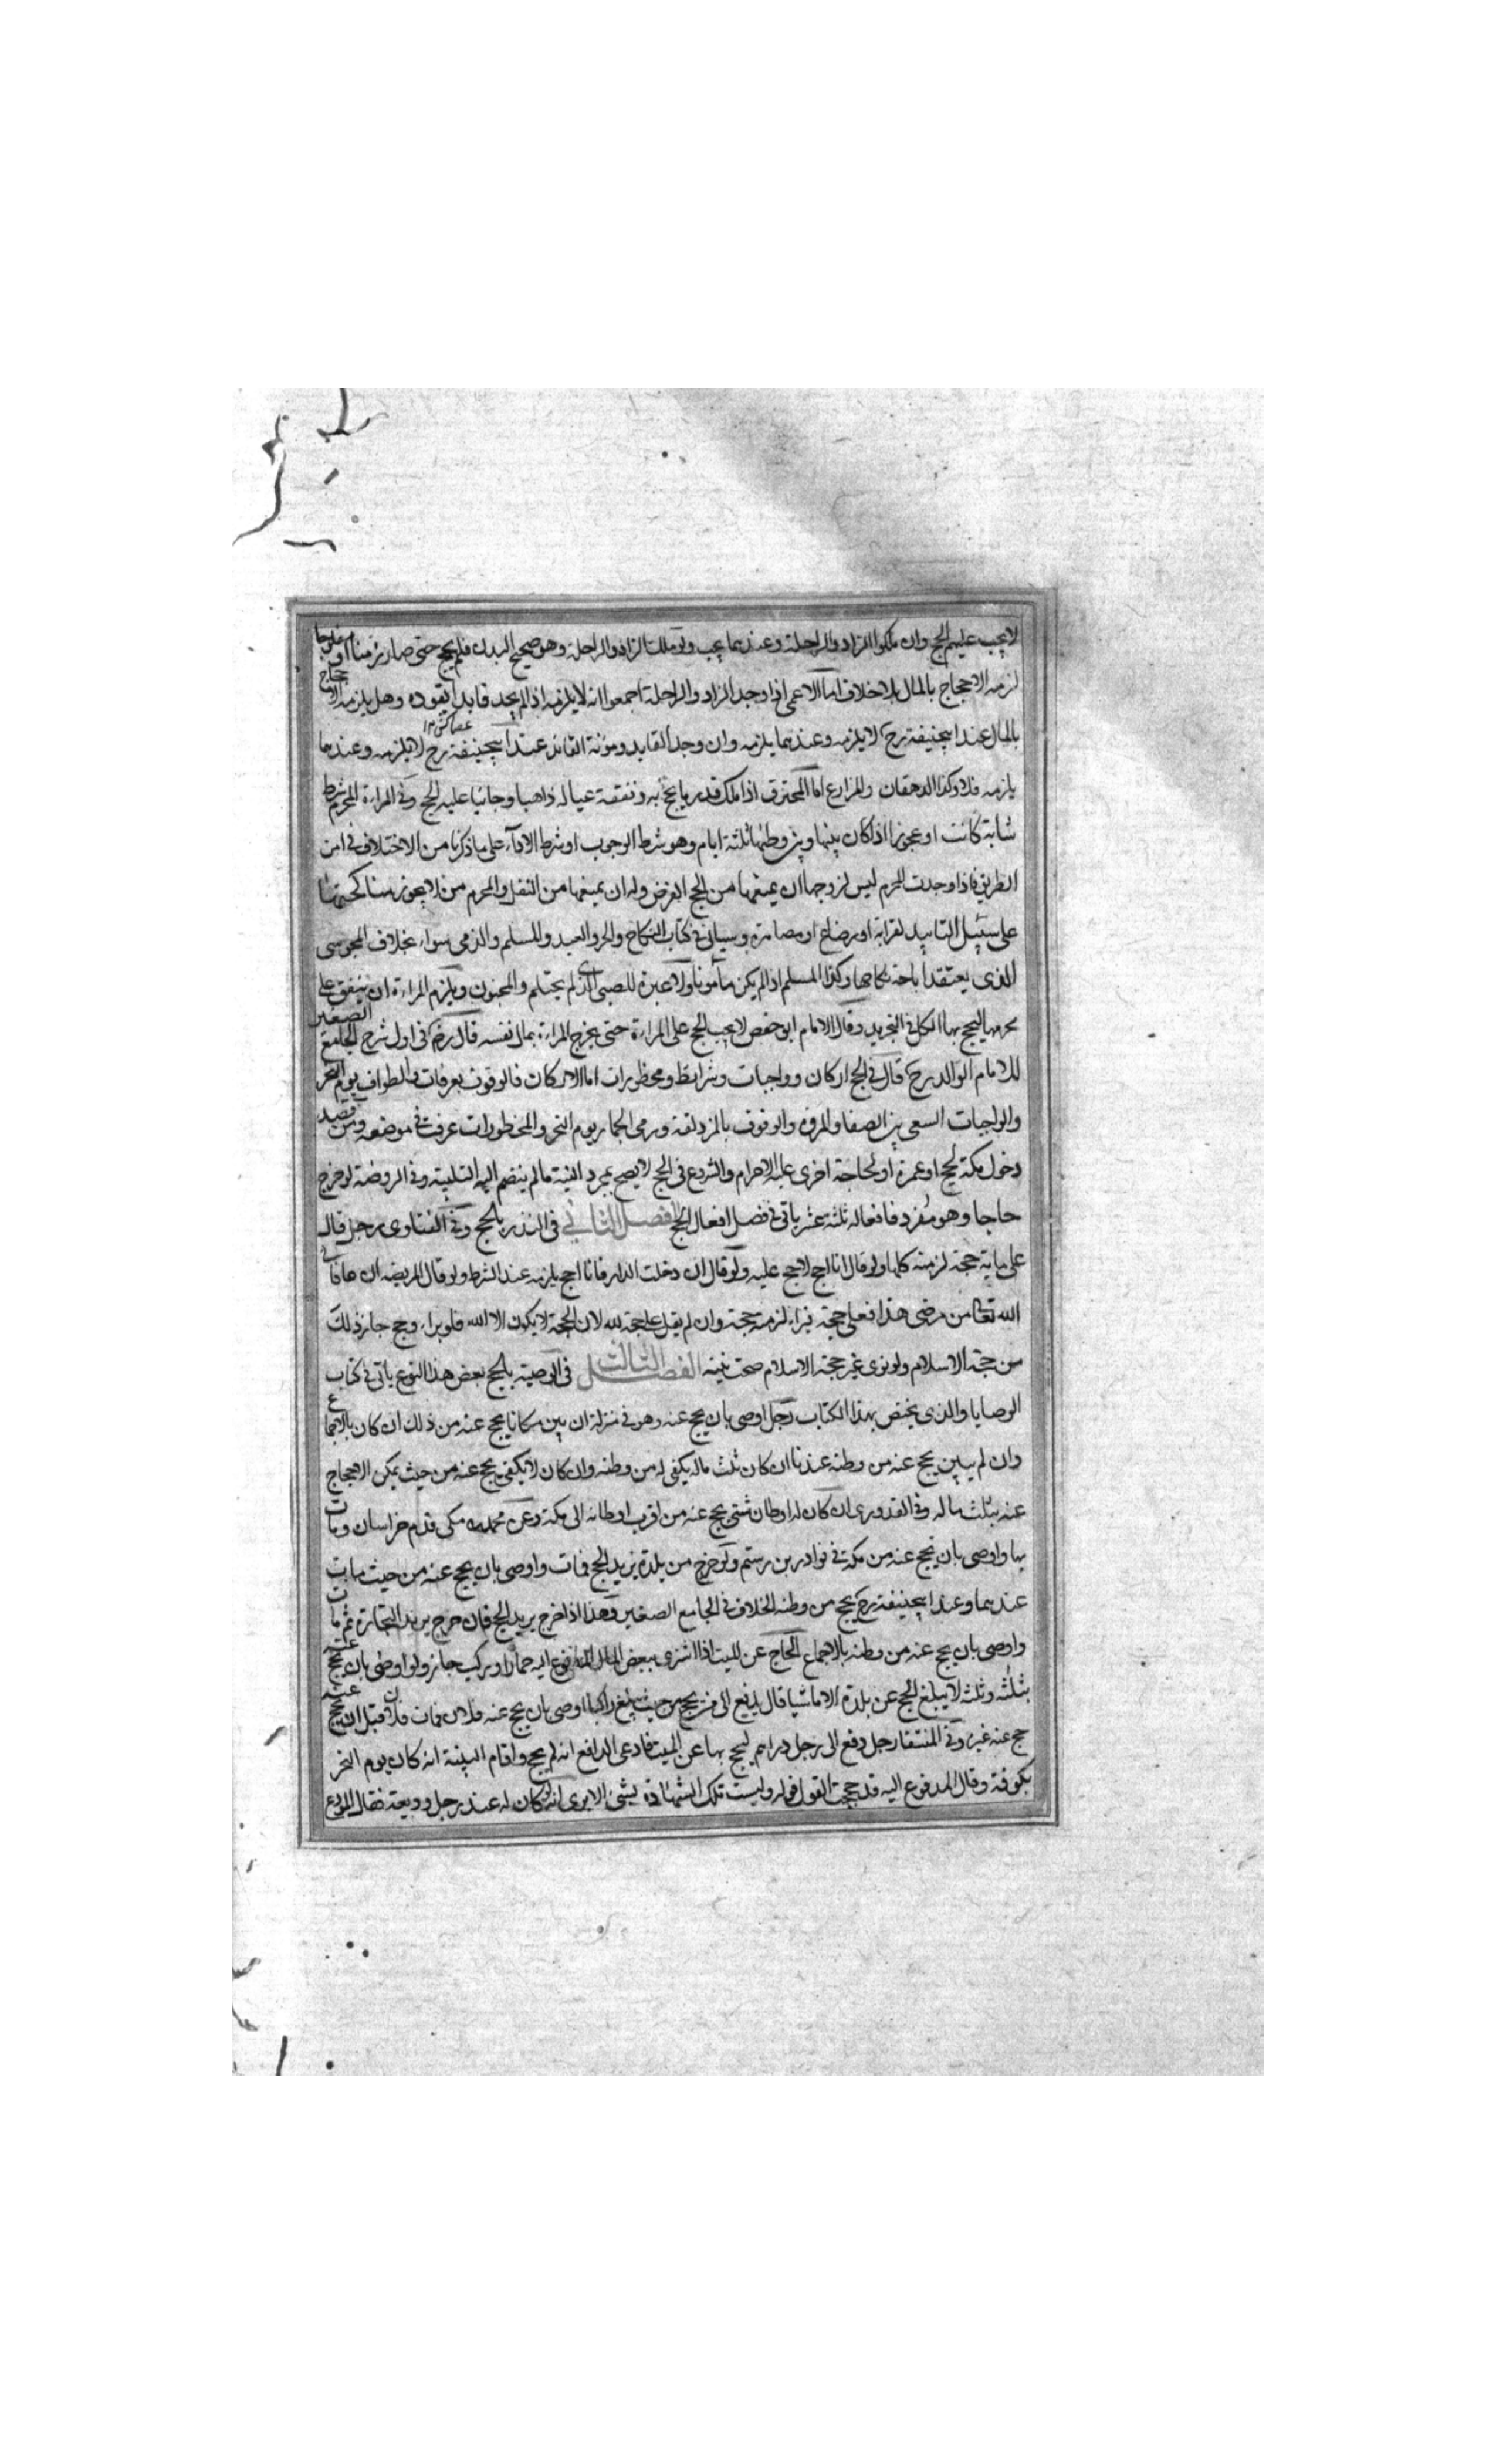 لا يجب عليهم الحج وان ملكوا الزاد والراحلة وعندهما يجب ولو ملك الزاد والراحلة وهو صحيح البدن فلم يحج حتى صار زمنا او مفلوجا
لزمه الاحجاج بالمال بلا خلاف اما الاعمى اذا وجد الزاد والراحلة اجمعوا انه لا يلزمه اذا لم يجد قايدا يقوده وهل يلزمه الاحجاج
بالمال عند ابيحنيفة رح لا يلزمه وعندهما يلزمه وان وجد القايد ومؤنة القائد عند ابيحنيفة رح لا يلزمه وعندهما
يلزمه فلا وكذا الدهقان والمزارع اما المحترف اذا ملك قدر ما يحج به ونفقة عياله ذاهبا وجائيا عليه الحج وفى المراءة المحرم شرط
شابة كانت او عجوزا اذا كان بينها وبين وطنها ثلثة ايام وهو شرط الوجوب او شرط الاداء على ما ذكرنا من الاختلاف فى امن
الطريق فاذا وجدت المحرم ليس لزوجها ان يمنعها من الحج الفرض وله ان يمنعها من النفل والمحرم من لا يجوز مناكحتها
على سبيل التابيد لقرابة او رضاع او مصاهرة وسياتى فى كتاب النكاح والحر والعبد والمسلم والذمى سواء بخلاف المجوسى
الذى يعتقد اباحة نكاحها وكذا المسلم اذا لم يكن مأمونا ولا عبرة للصبى الذى لم يحتلم والمجنون ويلزم المراءة ان ينفق على
محرمها ليحج بها الكل فى التجريد وقال الامام ابو حفص لا يجب الحج على المراءة حتى يخرج المراءة بمال نفسه قال رض فى اول شرح الجامع الصغير
للامام الوالد رح قال فى الحج اركان وواجبات وشرائط ومحظورات اما الاركان فالوقوف بعرفات والطواف يوم النحر
والواجبات السعى بين الصفا والمروة والوقوف بالمزدلفة ورمى الجمار يوم النحر والمحظورات عرفت فى موضعه ومن قصد
دخول مكة لحج او عمرة او لحاجة اخرى عليه الاحرام والشروع فى الحج لا يصح بمجرد النية ما لم ينضم اليه التلبية وفى الروضة لو خرج
حاجا وهو مفرد فافعاله ثلثة عشر ياتى فى فصل افعال الحج الفصل الثانى فى النذر بالحج وفى الفتاوى رجل قال
على ماية حجة لزمته كلها ولو قال انا احج لا حج عليه ولو قال ان دخلت الدار فانا احج يلزمه عند الشرط ولو قال المريض ان عافانى
الله تعالى من مرضى هذا فعلى حجة فبراء لزمه حجة وان لم يقل على حجة لله لان الحجة لا يكون الا لله فلو براء وحج جاز ذلك
من حجة الاسلام ولو نوى غير حجة الاسلام صحت نيته الفصل الثالث فى الوصية بالحج بعض هذا النوع ياتى فى كتاب
الوصايا والذى يختص بهذا الكتاب رجل اوصى بان يحج عنه وهو فى منزله ان بين مكانا يحج عنه من ذلك المكان بالاجماع
وان لم يبين يحج عنه من وطنه عندنا ان كان ثلث ماله يكفى له من وطنه وان كان لا يكفى يحج عنه من حيث يمكن الاحجاج
عنه بثلث ماله وفى القدورى ان كان له اوطان شتى يحج عنه من اقرب اوطانه الى مكة وعن محمد رح مكى قدم خراسان ومات
بها واوصى بان يحج عنه من مكة فى نوادر بن رستم ولو خرج من بلدة يريد الحج فمات واوصى بان يحج عنه من حيث مات
عندهما وعند ابيحنيفة رح يحج من وطنه الخلاف فى الجامع الصغير وهذا اذا خرج يريد الحج فان خرج يريد التجارة ثم مات
واوصى بان يحج عنه من وطنه بالاجماع الحاج عن الميت اذا اشترى ببعض المال المدفوع اليه حمارا وركب جاز ولو اوصى بان يحج عنه
بثلثه وثلثه لا يبلغ الحج عن بلدة الا ماشيا قال يدفع الى من يحج من حيث يبلغ راكبا اوصى بان يحج عنه فلان فمات فلان قبل ان يحج عنه
حج عنه غيره وفى المنتقى رجل دفع الى رجل دراهم ليحج بها عن الميت فادعى الدافع انه لم يحج واقام البينة انه كان يوم النحر
بكوفة وقال المدفوع اليه قد حججت القول قوله وليست تلك الشهادة بشئ الا يرى انه لو كان له عند رجل وديعة فقال المودع